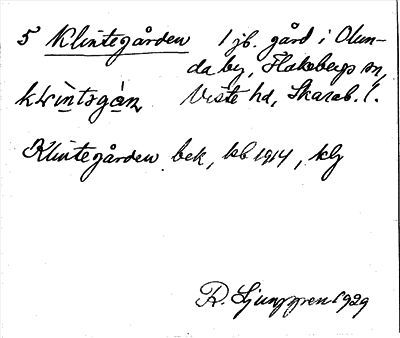 5 Klintegården 1 jb. gård i Olun-
da by, Flakebergs sn,
Viste hd, Skarab. l.
Klintegården bek, kb 1914, klg
R. Ljunggren 1929